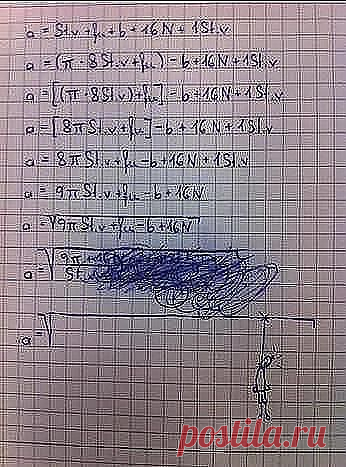 a = St.v + fu + b + 16 N + 1 St.v
a = (π · 8 St.v + fu) - b + 16 N + 1 St.v
a = [(π · 8 St.v) + fu] - b + 16 N + 1 St.v
a = [8π St.v + fu] - b + 16 N + 1 St.v
a = 8π St.v + fu - b + 16 N + 1 St.v
a = 9π St.v + fu - b + 16 N
a = √9π St.v + fu - b + 16 N
a = √9π + 16
St.v
a = √
postila.ru